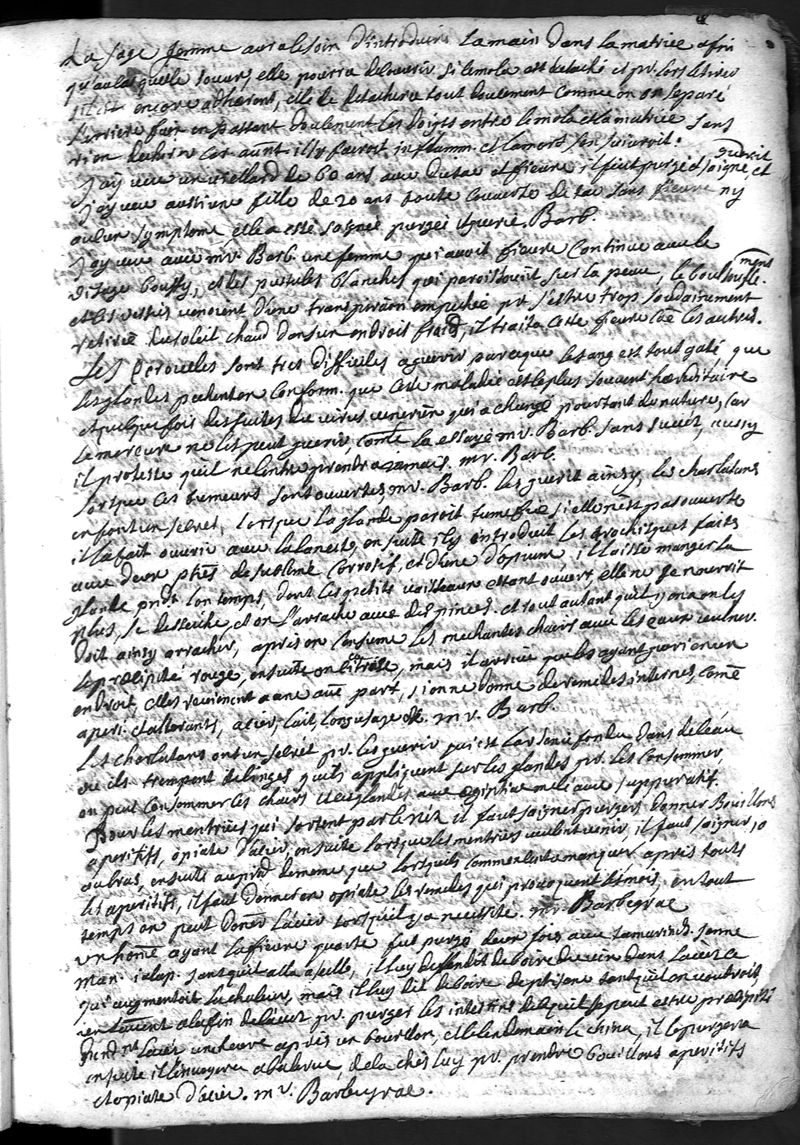 La sage femme aura le soin d'introduire la main dans la matrice afin
qu'au lasquelle souvr, elle pourra decouvrir si le mole est detaché et pr. lors le tirer
s'il est encore adherant, elle le detachera tout doulement comme on separe
l'arriere fair en passant doulement les doigts entre le mola et la matrice sans
rien dechirer car aumt il sy fairoit inflamm. et la mort s'en suivroit.
J'ay veu un viellard de 60 ans avec du tac et fievre, il fut purgé et soigné, et guerit
J'ay veu aussi une fille de 20 ans toute couverte de tac sans fievre ny
aucun symptome, elle a esté soignée purgée et guerie. Barb.
J'ay veu avec mr Barb. une femme qui avoit fievre continue avec le
visage bouffy, et les pustules blanches qui paroissoint sur la peau, le boursoufle-mens
et les vessies venoient d'une transpiraon empechée pr. s'estre trop soudainement
retirée du soleil chaud dans un endroit froid, il traita cette fievre coe les autres.
Les scrouelles sont tres difficiles a guerir, parceque le sang est tout gaté que
les glandes pechent en conform. que cette maladie est le plus souvent hereditaire
et quelquefois des suites du virus venerien qui a changé pourtant de nature, car
le mercure ne les peut guerir, come la essayé mr. Barb. sans succez, aussy
il proteste qu'il ne l'entreprendra jamais. mr. Barb.
Lorsque ces tumeurs sont ouvertes mr. Barb. les guerit ainsy, les charlatans
en font un secret, lorsque la glande paroit tumefiée si elle n'est pas ouverte
il la fait ouvrir avec la lancete, en suite il y introduit les trochisques faits
avec deux pties de sublimé corrosif, et d'une d'opium, il laisse manger la
glande pndt lon temps, dont les petits vaisseaux estant ouverts elle ne se nourrit
plus, se desseche, et on l'arrache avec des pinces. et tout autant qu'il y en a on les
doit ainsy arracher, apres on consume les mechantes chairs avec les eaux vulner.
le precipité rouge, en suite on cicatrise, mais il arrive que les ayant gueri en un
endroit, elles reviennent a une aue part, si on ne donne de remedes internes, come
aperi. et alterants, acier, lait, long usage &c. mr. Barb.
Les charlatans ont un secret pr. les guerir, qui est l'arsenic fondu dans de l'eau
ou ils trempent de linges qu'ils appliquent sur les glandes pr. les consommer,
on peut consommer les chairs et les glandes avec egiptiac melé avec suppuratif.
Pour les mentrües qui sortent par le nez il faut saigner purger, donner Bouillons
aperitifs, opiate d'acier, en suite lorsque les mentrües veulent venir, il faut saigner, 10
au bras, en suite au pied de meme que lorsqu'ils commencent a manquer, apres touts
les aperitifs, il faut donner en opiate les remedes qui provoquent les mois, en tout
temps on peut doner l'acier lorsqu'il y a necessité. mr. Barbeyrac
un home ayant la fievre quarte fut purgé deux fois avec tamarinds. senne
man. jalap. sans qu'il alla a selle, il luy deffendit de boire du vin dans l'accez ce
qui augmentoit la chaleur, mais il luy dit de boire de ptisane tant qu'il en voudroit,
un lavement a la fin de l'accez pr. purger les intestins de ce qui se peut estre precipité
pend.nt l'accez une heure apres un bouillon, et le lendemain le china, il le purgera
en suite il l'envoyera a Balaruc, de la ches luy pr. prendre bouillons aperitifs
et opiate d'acier. mr. Barbeyrac.